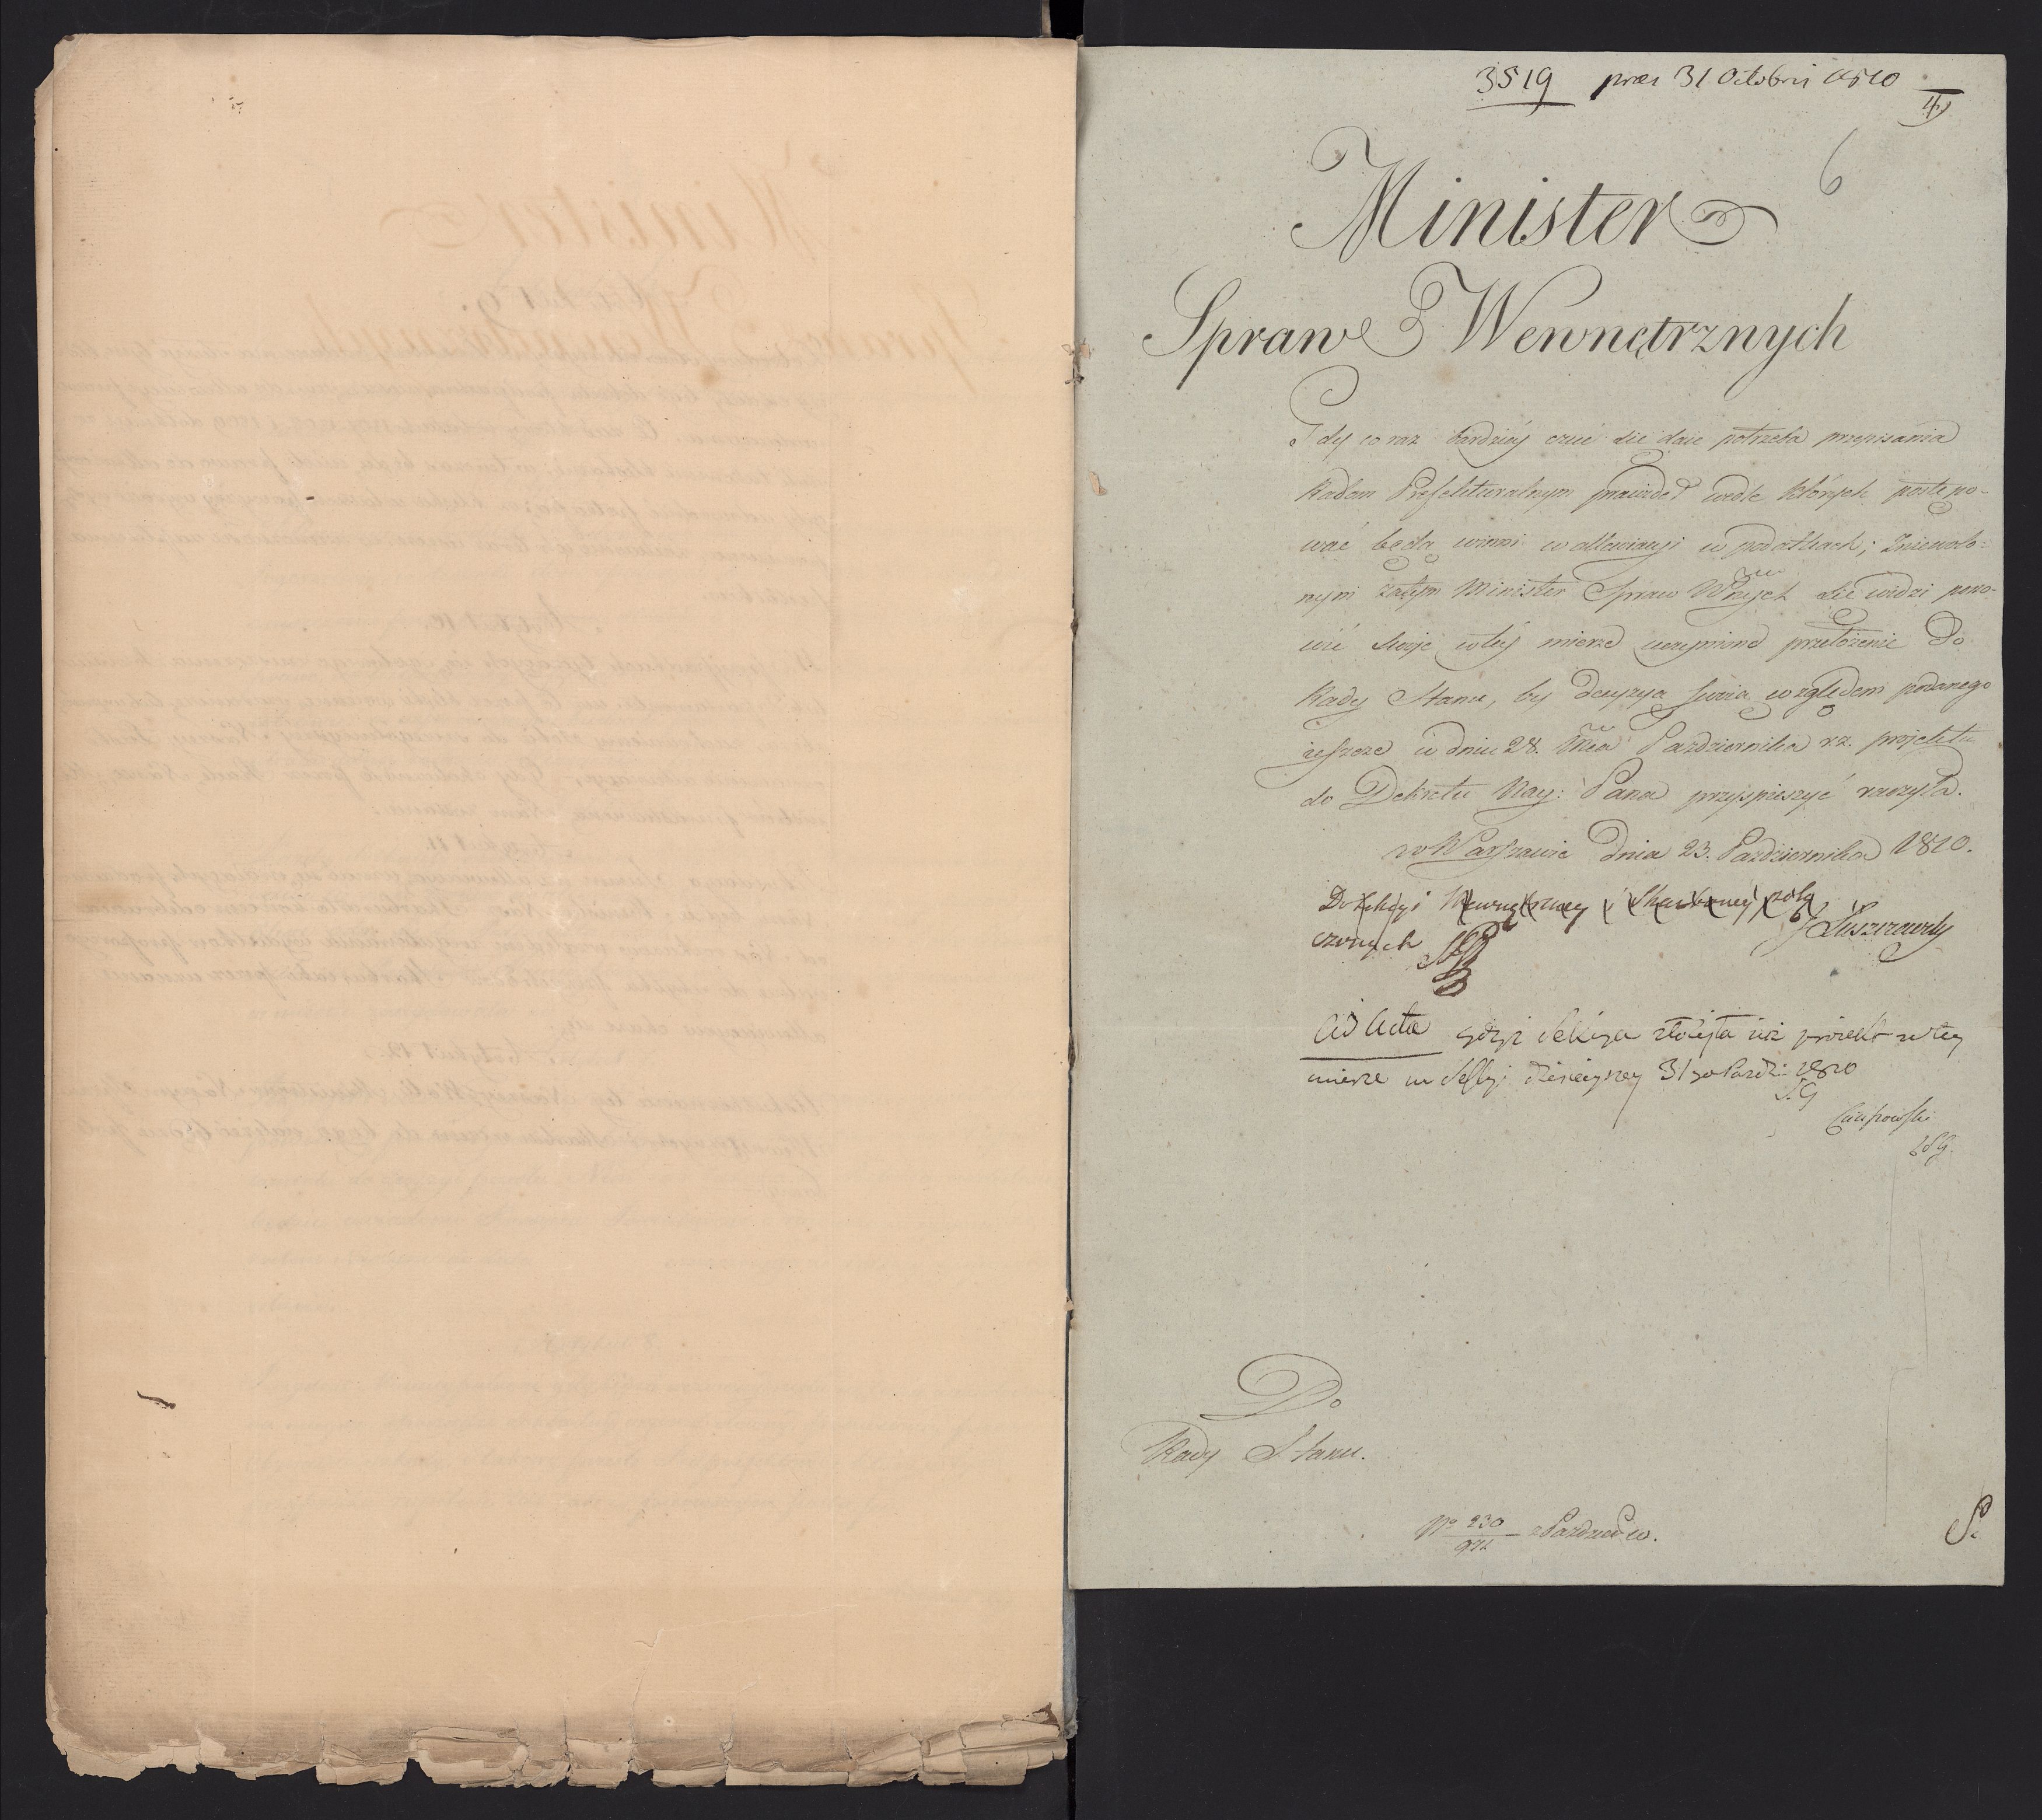 3519 præs 31 Octobris 1810
6
Minister
Spraw Wewnętrznych
Gdy co raz bardziéy czuć się daie potrzeba przepisania
Radom Prefekturalnym prawideł wedle których postępo-
wać będą winni w allewiacyi w podatkach; Zniewolo-
nym zatym Minister Spraw Wnętrznych się widzi pono-
wić swoje w téy mierze uczynione przełożenie Do
Rady Stanu, by decyzya swoia względem podanego
ieszcze w dniu 28. Mca Października r.z. projektu
do Dekretu Nay: Pana przyspieszyć raczyła.
w Warszawie Dnia 23. Października 1810.
Do Sekcyi Wewnętrzney i Skarbowey połą
czonych
J Łuszczewski
Ad Acta gdyż Sekcya złożyła iuż proiekt w tey
mierze na Sessyi dzisieyszey 31go Paźdz: 1810
S.G
Do
Rady Stanu.
No 230